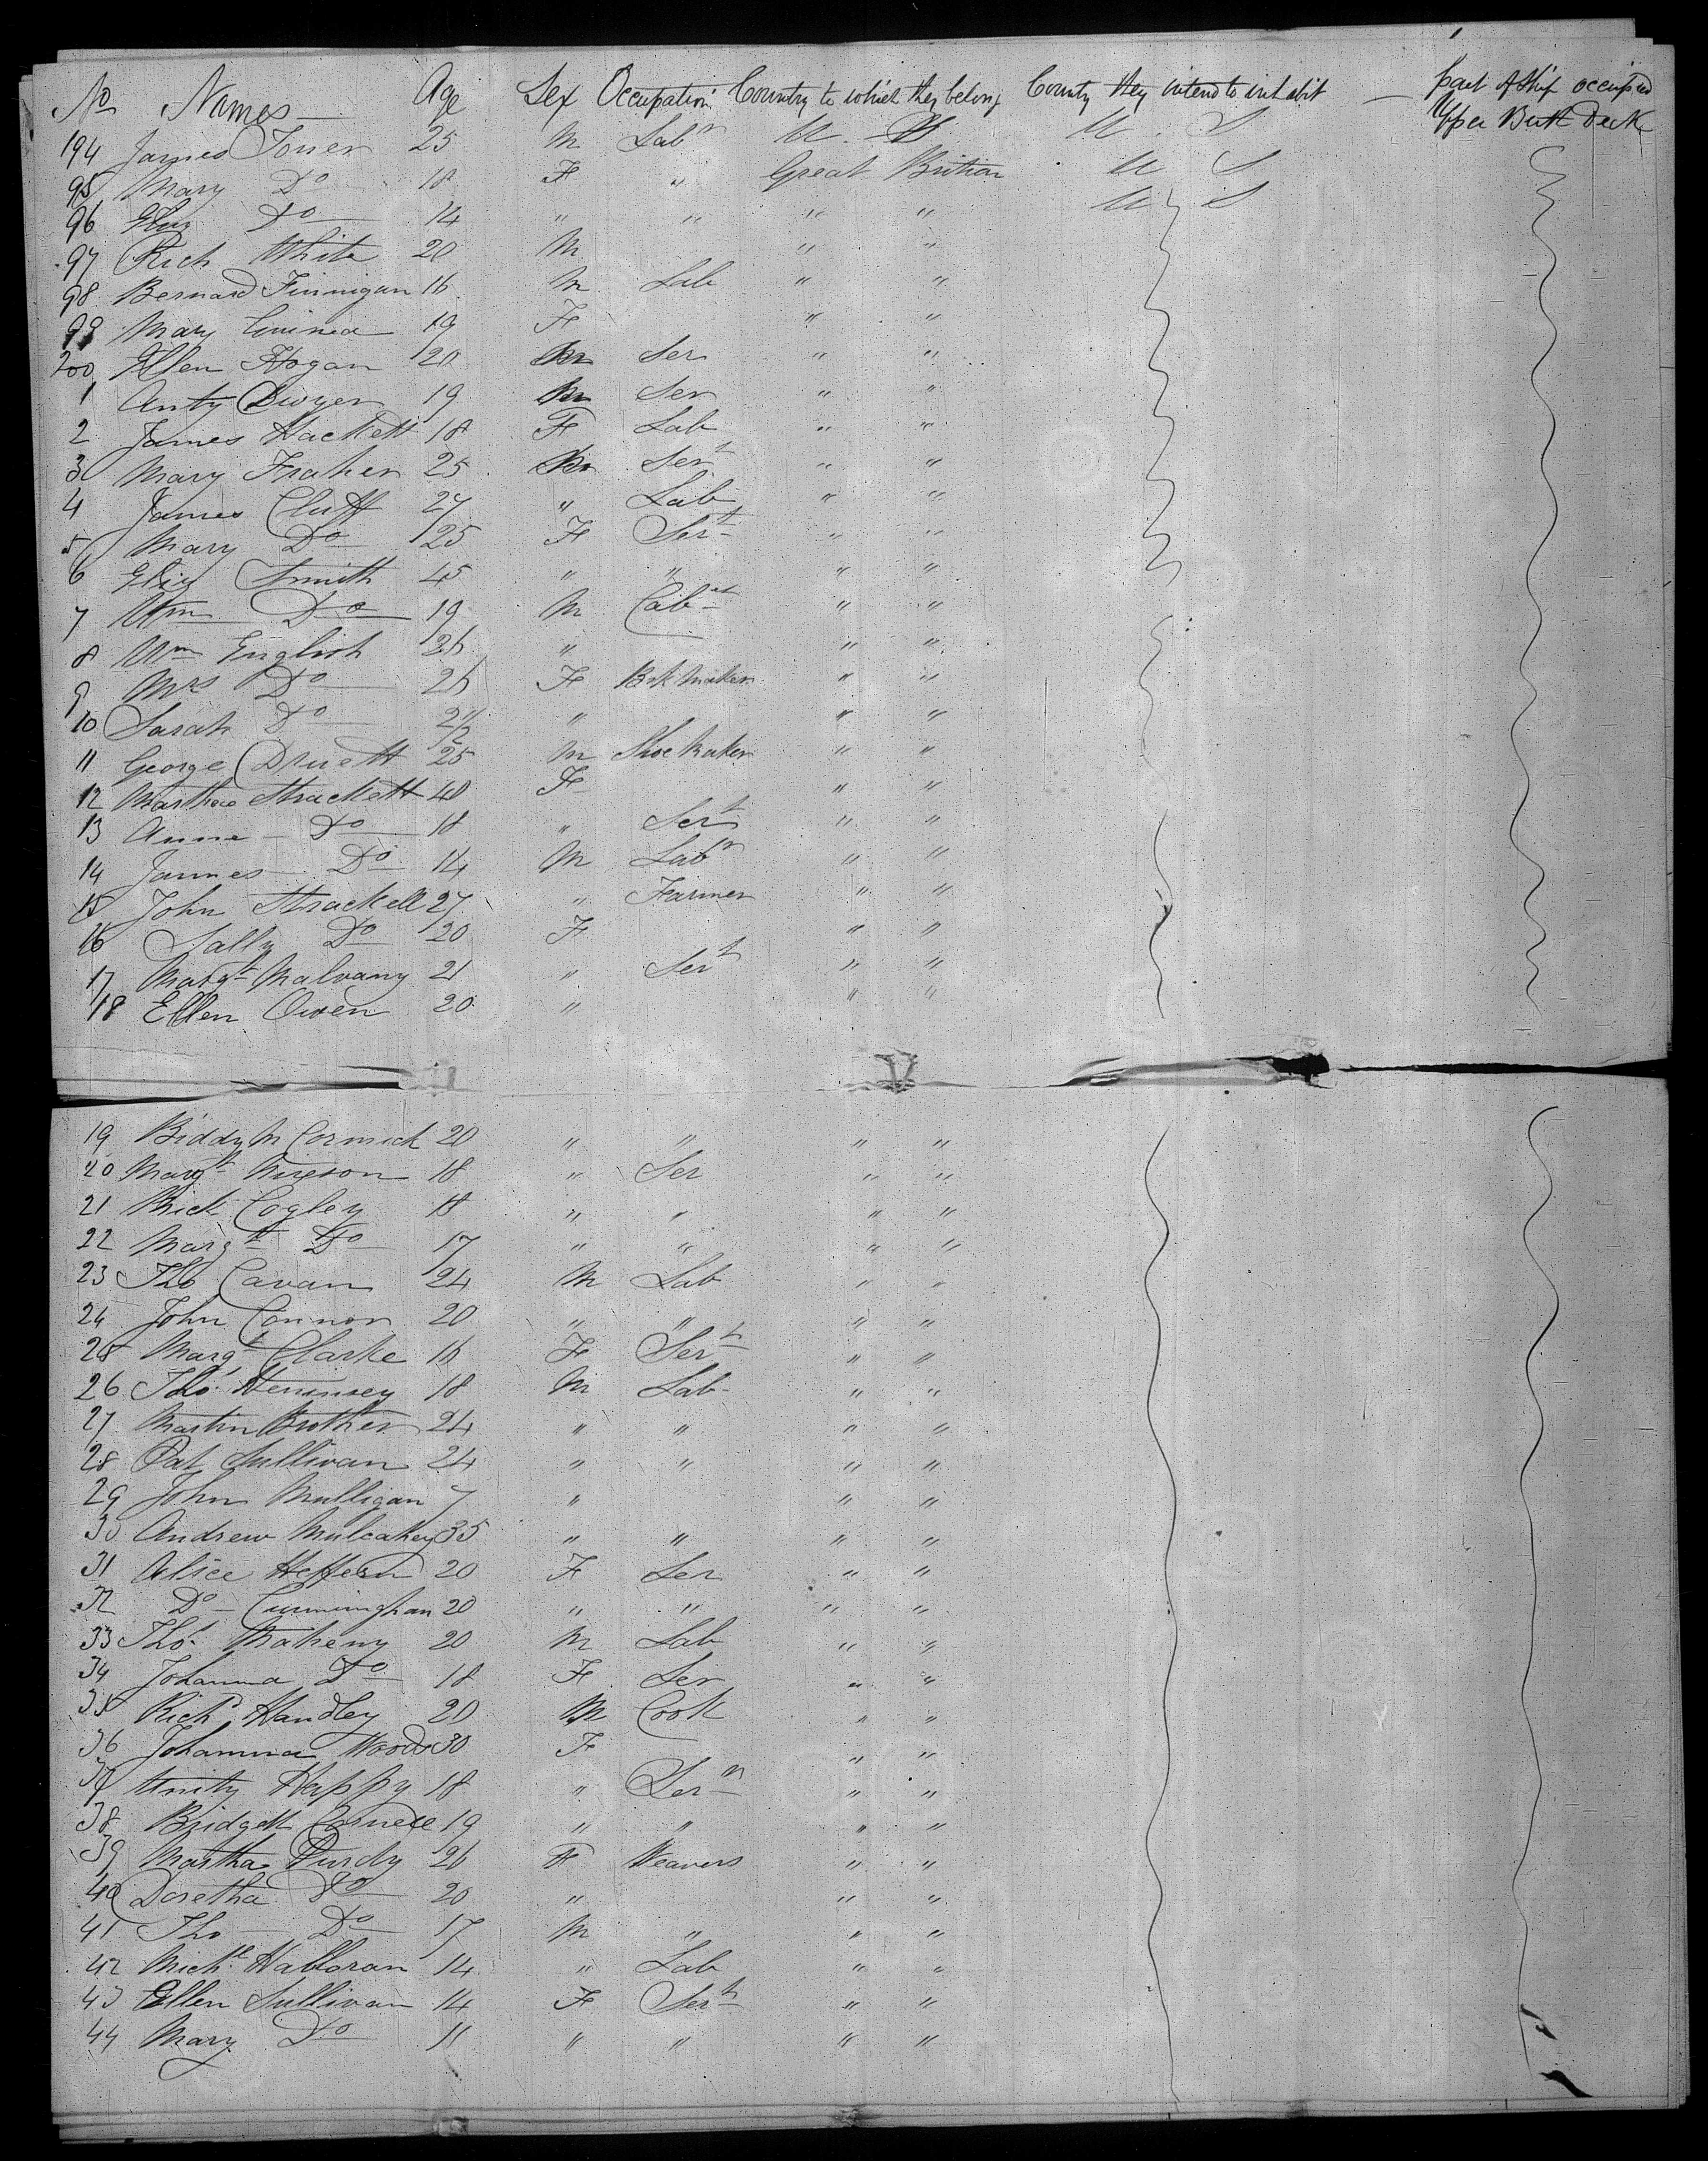 No Names Age Sex Occupation Country to which they belong County they intend to inhabit part of ship occupied
194 James Toner 25 M Labr U. S U. S Upper Deck
95 Mary Do 18 F " Great Britian U S
96 Do 14 " " " " U S
97 Rich White 20 M " "
98 Bernard Finnigan 16 M Lab " "
99 Mary 19 F " "
200 Ellen Hogan 20 M Ser " "
1 Anty Dwyer 19 M Ser " "
2 James Hackett 18 F Lab " "
3 Mary Fraher 25 M Sert " "
4 James Cluff 27 " Lab " "
5 Mary Do 25 F Sert " "
6 Eliz Smith 45 " " " "
7 Wm Do 19 M Cabt " "
8 Wm English 26 " " "
9 Mrs Do 26 F " "
10 Sarah Do 2 1/2 " " "
11 George Druett 25 M Shoe Maker " "
12 Martha 40 F " "
13 Anne Do 18 " Sert " "
14 James Do 14 M Labr " "
15 John 27 " Farmer " "
16 Sally Do 20 F " "
17 Margt Malvany 21 " Sert " "
18 Ellen Owen 20 " " "
19 Biddy McCormick 20 " " " "
20 Margt 18 " Ser " "
21 Cogley 18 " " " "
22 Margt Do 17 " " " "
23 Tho Cavan 24 M Lab " "
24 John Connor 20 " " " "
25 Margt Clarke 16 F Sert " "
26 Thos Hennesey 18 M Lab " "
27 Martin Brother 24 " " " "
28 Pat Sullivan 24 " " " "
29 John Mulligan 7 " " "
30 Andrew Mulcahey 35 " " " "
31 Alice 20 F Ser " "
32 Do Cunningham 20 " " " "
33 Thos Maheny 20 M Lab " "
34 Johanna Do 18 F Ser " "
35 Richd Handley 20 M Cook " "
36 Johanna Woods 30 F " "
37 Unity Happy 18 " Ser " "
38 Bridgett 19 " " " "
39 Martha Purdy 26 F Weavers " "
40 Doretha Do 20 " " "
41 Tho Do 17 M " " "
42 Michl Halloran 14 " Lab " "
43 Ellen Sullivan 14 F Sert " "
44 Mary Do 11 " " " "